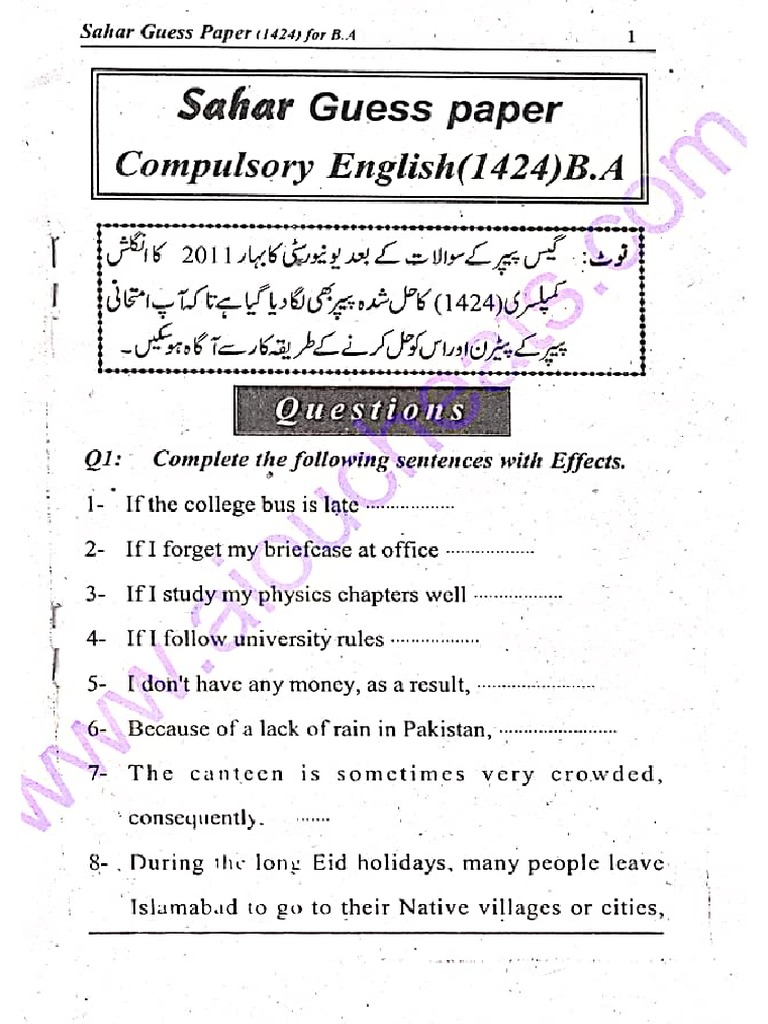 Sahar Guess Paper (1424) for B.A 1
Sahar Guess paper
Compulsory English(1424)B.A
نوٹ: گیس پیپر کے سوالات کے بعد یونیورسٹی کا بہار 2011 کا انگلش
کمپلسری (1424) کا حل شدہ پیپر بھی لگا دیا گیا ہے تاکہ آپ امتحانی
پیپر کے پیٹرن اور اس کو حل کرنے کے طریقہ کار سے آگاہ ہو سکیں۔
Questions
Q1: Complete the following sentences with Effects.
1- If the college bus is late ..................
2- If I forget my briefcase at office ..................
3- If I study my physics chapters well ..................
4- If I follow university rules ..................
5- I don't have any money, as a result, ........................
6- Because of a lack of rain in Pakistan, ........................
7- The canteen is sometimes very crowded,
consequently. .......
8- During the long Eid holidays, many people leave
Islamabad to go to their Native villages or cities,
www.aioucheats.com